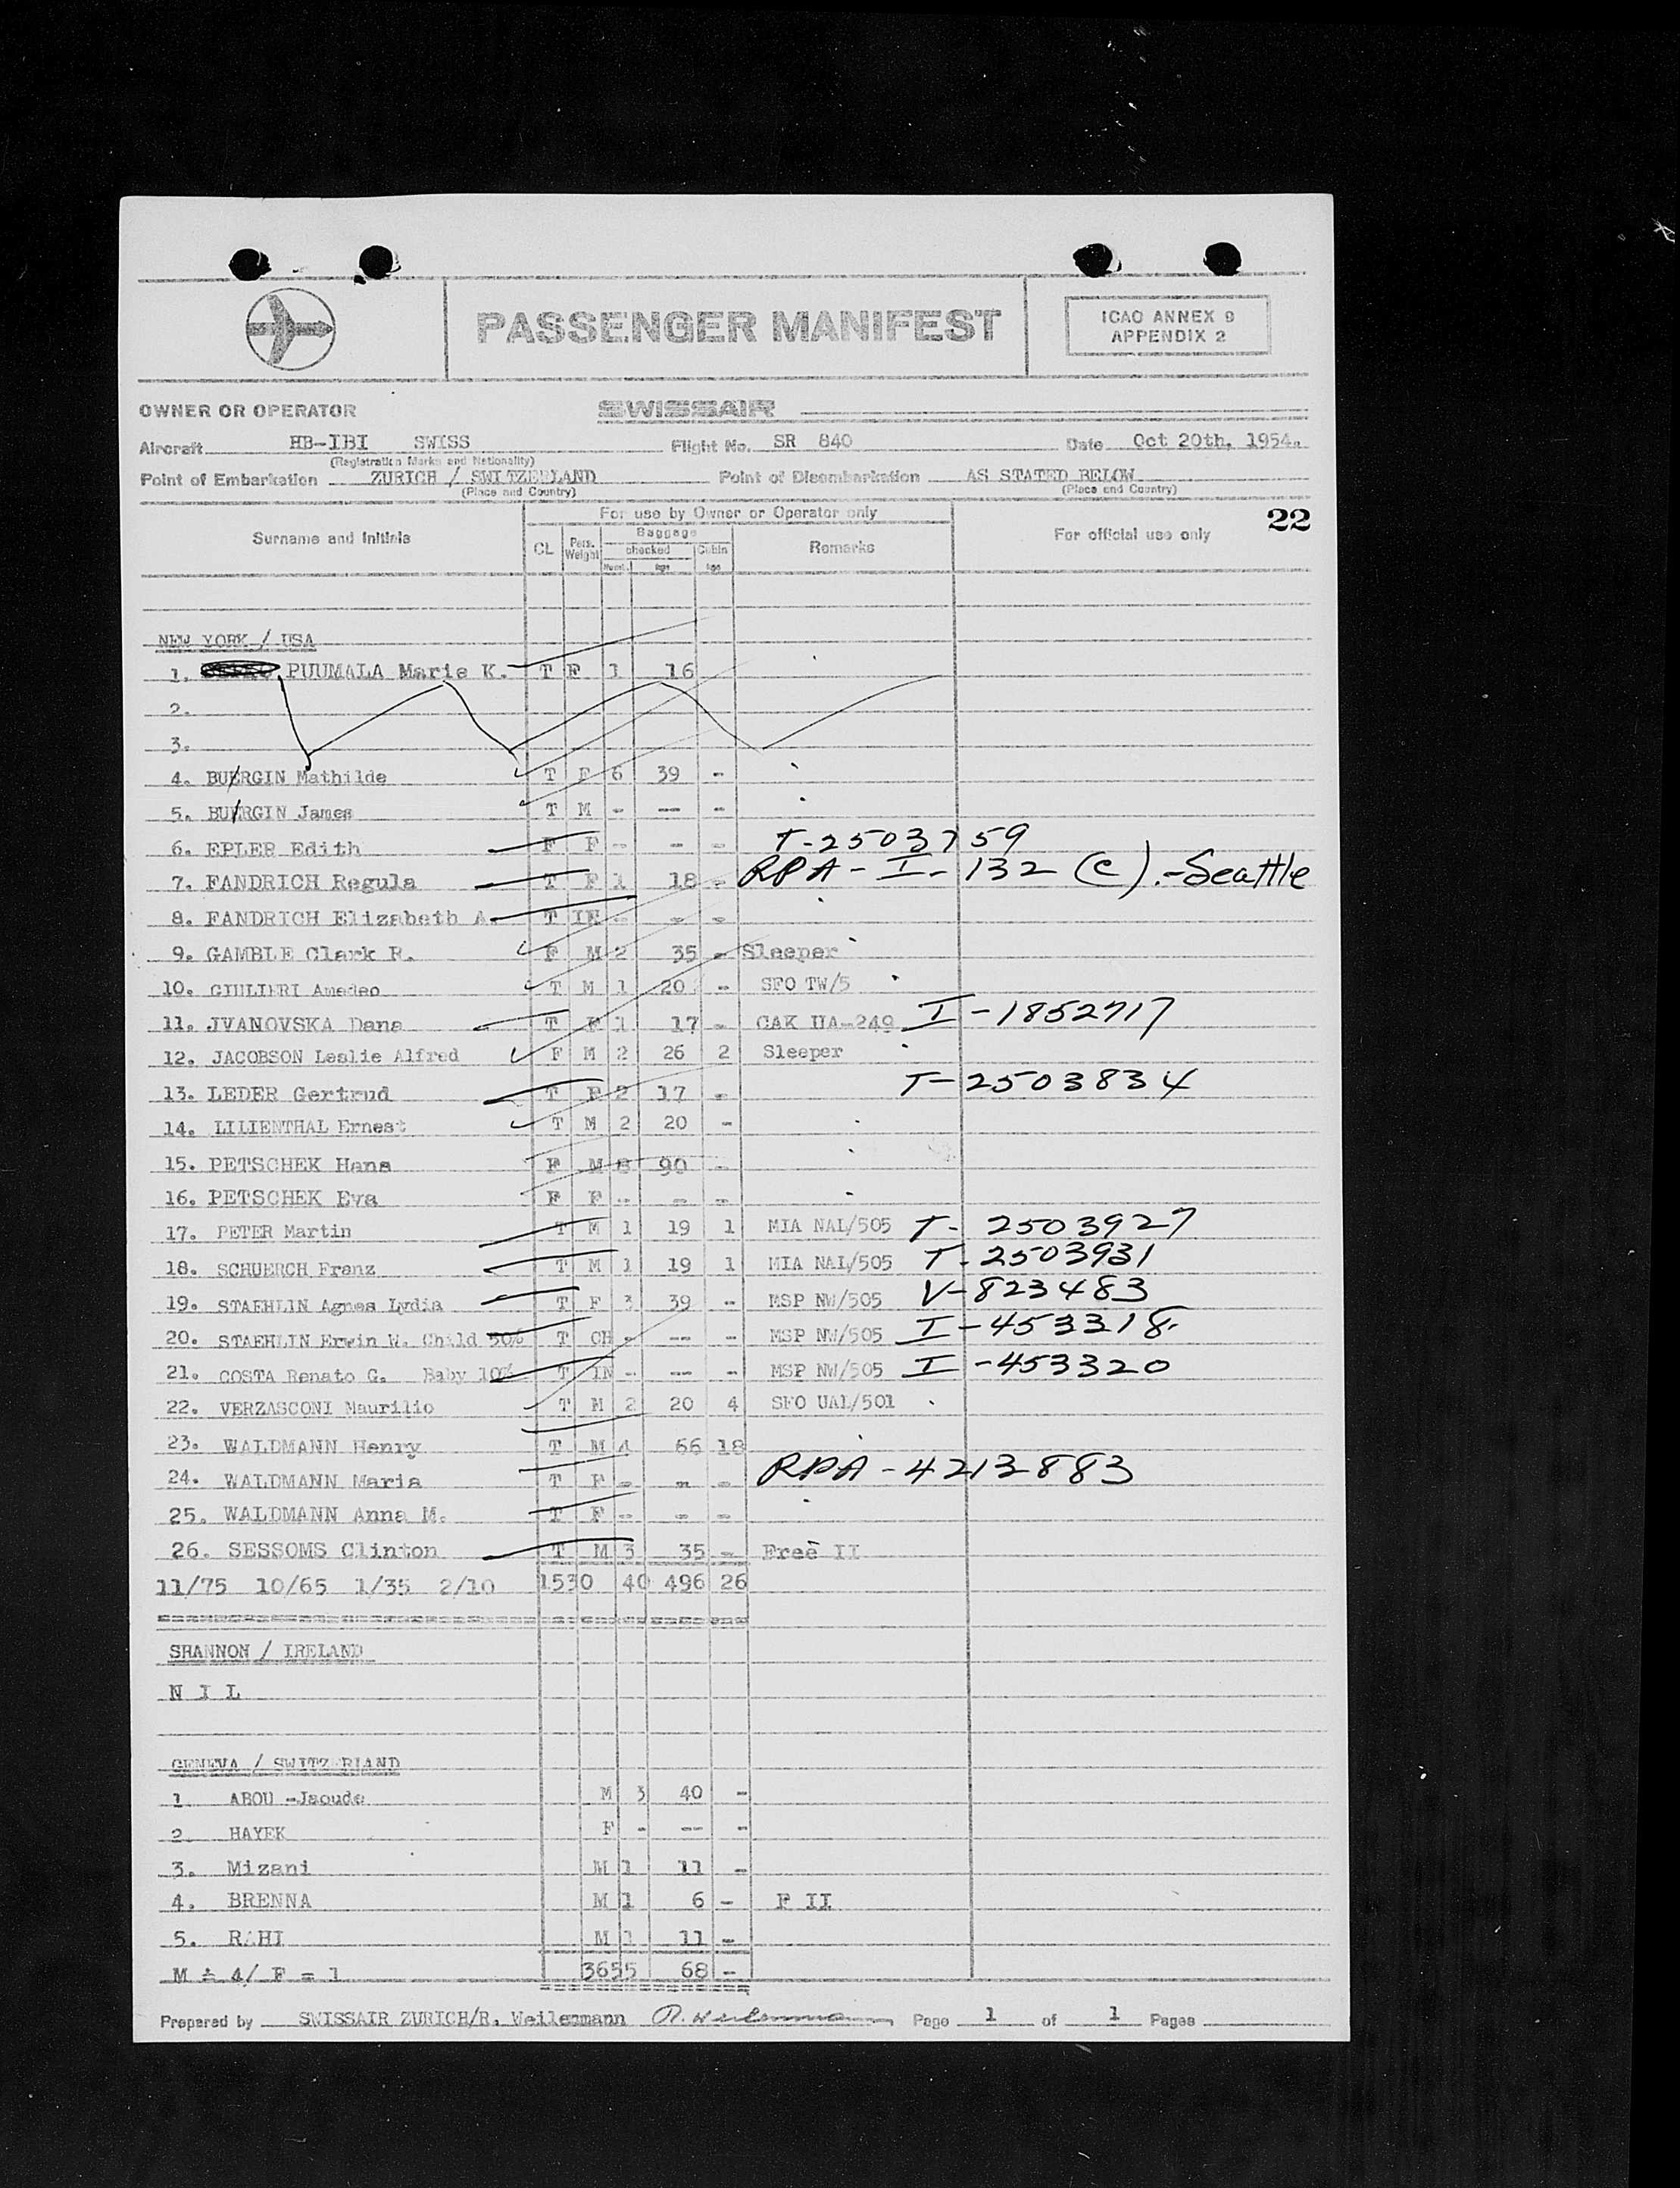 PASSENGER MANIFEST
ICAO ANNEX 9
APPENDIX 2
OWNER OR OPERATOR SWISSAIR
Aircraft HB-IBI SWISS Flight No. SR 840 Date Oct 20th, 1954.
(Registration Marks and Nationality)
Point of Embarkation ZURICH / SWITZERLAND Point of Disembarkation AS STATED BELOW
(Place and Country) (Place and Country)
22
Surname and Initials For use by Owner or Operator only For official use only
CL Pers. Weight Baggage checked Cabin Remarks
Num. kgs kgs
NEW YORK / USA
1. PUUMALA Marie K. T F 1 16
2.
3.
4. BUERGIN Mathilde T F 6 39 -
5. BUERGIN James T M - -- -
6. EPLER Edith F F - - - T-2503759
7. FANDRICH Regula T F 1 18 - RPA - I - 132 (C).-Seattle
8. FANDRICH Elizabeth A. T IF - - -
9. GAMBLE Clark R. F M 2 35 - Sleeper
10. GIULIERI Amedeo T M 1 20 - SFO TW/5
11. JVANOVSKA Dana T F 1 17 - CAK UA-249 I-1852717
12. JACOBSON Leslie Alfred F M 2 26 2 Sleeper
13. LEDER Gertrud T F 2 17 - T-2503834
14. LILIENTHAL Ernest T M 2 20 -
15. PETSCHEK Hans F M 8 90 -
16. PETSCHEK Eva F F - - -
17. PETER Martin T M 1 19 1 MIA NAL/505 T- 2503927
18. SCHUERCH Franz T M 1 19 1 MIA NAL/505 T-2503931
19. STAEHLIN Agnes Lydia T F 3 39 - MSP NW/505 V-823483
20. STAEHLIN Erwin W. Child 50% T CH - -- - MSP NW/505 I-453318
21. COSTA Renato G. Baby 10% T IN - -- - MSP NW/505 I-453320
22. VERZASCONI Maurilio T M 2 20 4 SFO UAL/501
23. WALDMANN Henry T M 4 66 18
24. WALDMANN Maria T F - - - RPA-4213883
25. WALDMANN Anna M. T F - - -
26. SESSOMS Clinton T M 3 35 - Free II
11/75 10/65 1/35 2/10 1530 40 496 26
SHANNON / IRELAND
N I L
GENEVA / SWITZERLAND
1 ABOU -Jaoude M 3 40 -
2 HAYEK F - -- -
3. Mizani M 1 11 -
4. BRENNA M 1 6 - F II
5. RAHI M 1 11 -
M = 4/ F = 1 3655 68 -
Prepared by SWISSAIR ZURICH/R. Weilenmann R. Weilenmann Page 1 of 1 Pages